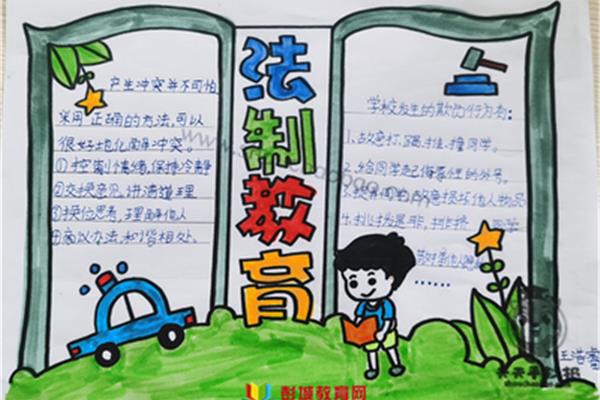 法制教育
产生冲突并不可怕
采用正确的方法,可以
很好地化解冲突。
①控制情绪,保持冷静
②交换意见,讲清道理
③换位思考,理解他人
④商议办法,和谐相处。
学校发生的欺伤行为有:
1.故意打、踢、推、撞同学。
2.给同学起侮辱性的外号。
故意损坏他人物品
4.挑拨是非,排挤 同学
......
王浩
彭城教育网